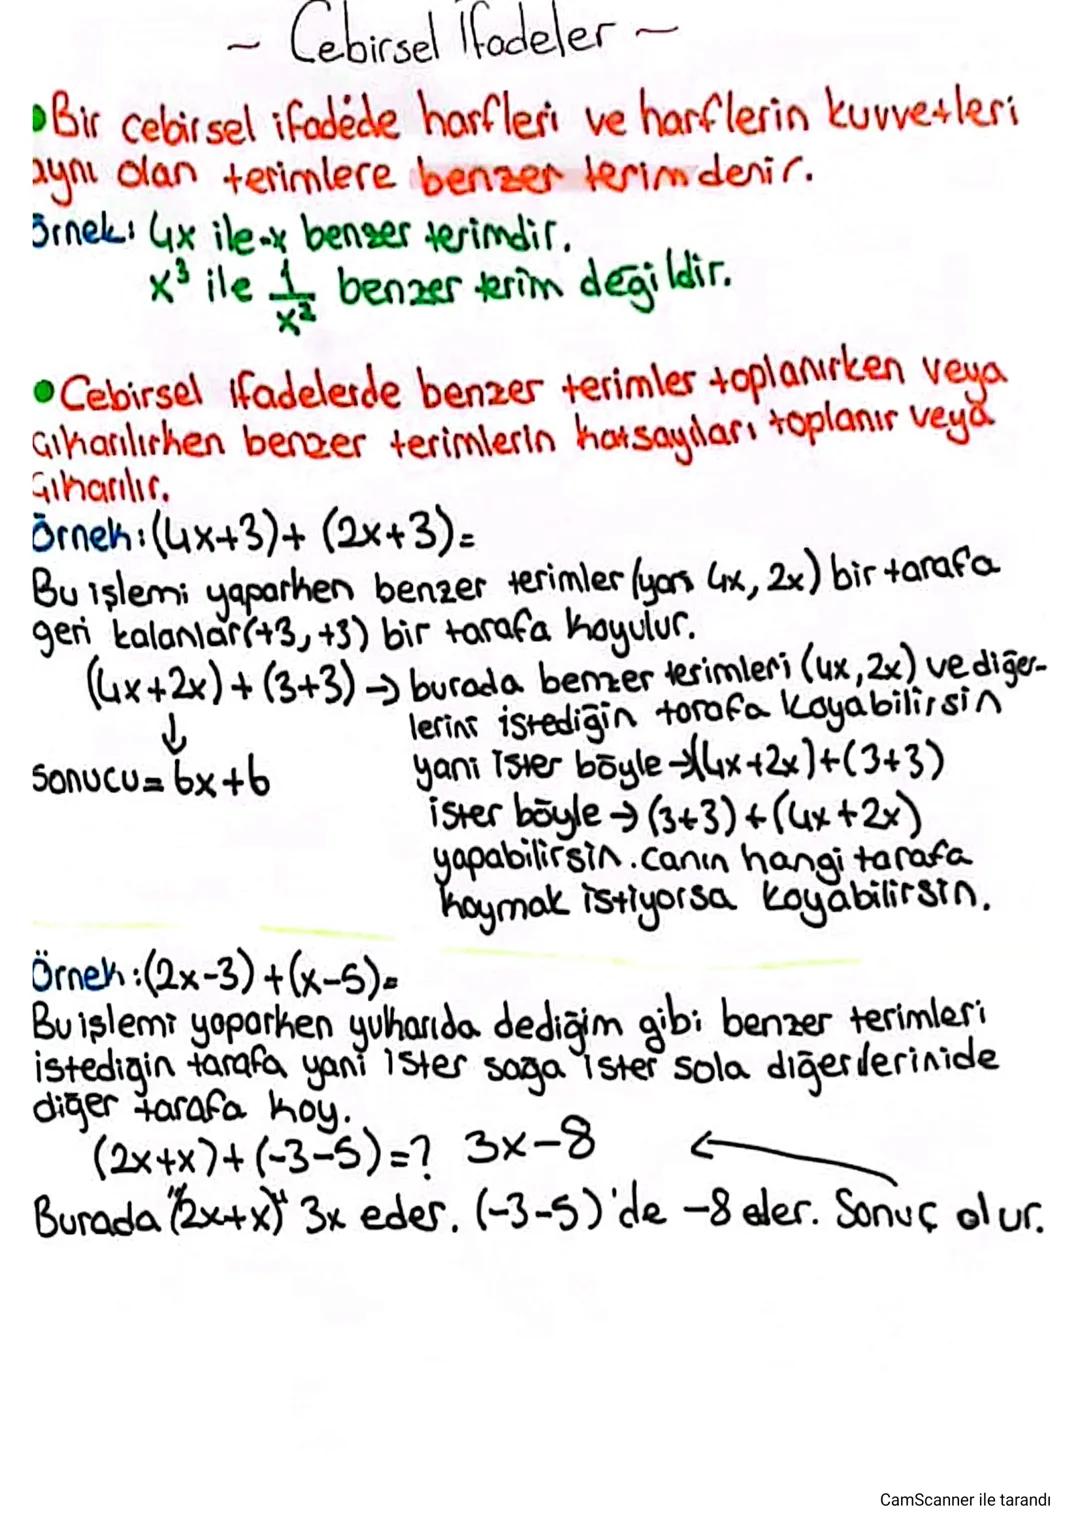 ~ Cebirsel İfadeler ~
Bir cebirsel ifadede harfleri ve harflerin kuvvetleri
aynı olan terimlere benzer terim denir.
Örnek: 4x ile -x benzer terimdir.
x³ ile 1/x² benzer terim değildir.
Cebirsel ifadelerde benzer terimler toplanırken veya
çıkarılırken benzer terimlerin katsayıları toplanır veya
çıkarılır.
Örnek: (4x+3)+ (2x+3)=
Bu işlemi yaparken benzer terimler (yani 4x, 2x) bir tarafa
geri kalanlar (+3, +3) bir tarafa koyulur.
(4x+2x) + (3+3) → burada benzer terimleri (4x, 2x) ve diğer-
↓ lerini istediğin tarafa koyabilirsin
sonucu= 6x+6 yani ister böyle → (4x+2x)+(3+3)
ister böyle → (3+3) + (4x+2x)
yapabilirsin. canın hangi tarafa
koymak istiyorsa koyabilirsin.
Örnek: (2x-3) + (x-5)=
Bu işlemi yaparken yukarıda dediğim gibi benzer terimleri
istediğin tarafa yani ister sağa ister sola diğerlerinide
diğer tarafa koy.
(2x+x)+(-3-5)=? 3x-8 ←
Burada "(2x+x)" 3x eder. (-3-5)'de -8 eder. Sonuç olur.
CamScanner ile tarandı